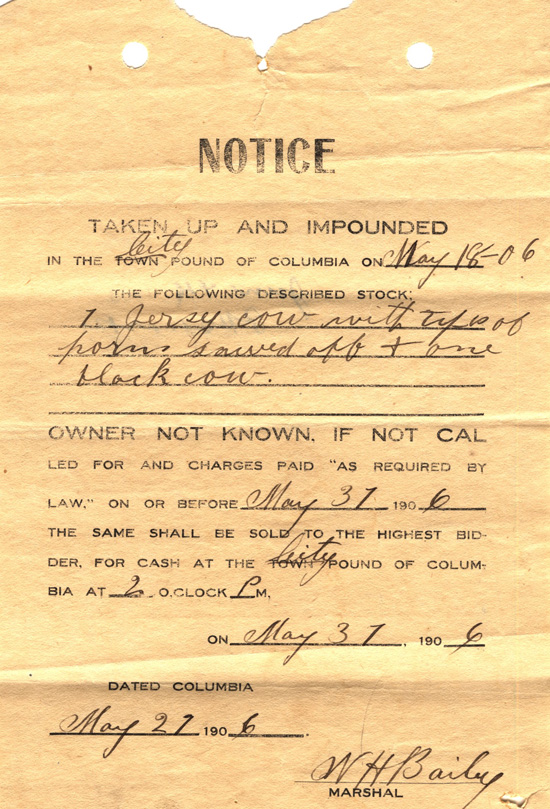 NOTICE
TAKEN UP AND IMPOUNDED
City
IN THE TOWN POUND OF COLUMBIA ON May 18-06
THE FOLLOWING DESCRIBED STOCK:
1. Jersy cow with tips of
horns sawed off & one
black cow.
OWNER NOT KNOWN, IF NOT CAL
LED FOR AND CHARGES PAID "AS REQUIRED BY
LAW," ON OR BEFORE May 31 1906
THE SAME SHALL BE SOLD TO THE HIGHEST BID-
City
DER, FOR CASH AT THE TOWN POUND OF COLUM-
BIA AT 2 O,CLOCK PM,
ON May 31, 1906
DATED COLUMBIA
May 21 1906.
W H Bailey
MARSHAL